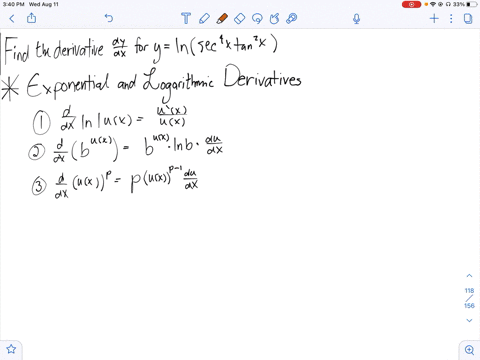 3:40 PM Wed Aug 11
33%
Find the derivative dy/dx for y = ln(sec⁴x tan²x)
* Exponential and Logarithmic Derivatives
① d/dx ln|u(x) = u'(x)/u(x)
② d/dx (b^u(x)) = b^u(x) · ln b · du/dx
③ d/dx (u(x))^p = p(u(x))^(p-1) du/dx
118
/
156